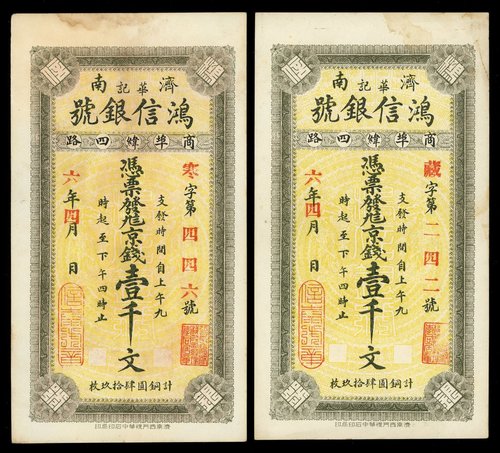 濟南
華記
鴻信銀號
商埠緯四路
寒字第四四六號
支發時間自上午九
時起至下午四時止
憑票發兌京錢壹千文
六年四月 日
計銅圓肆拾玖枚
濟南
華記
鴻信銀號
商埠緯四路
藏字第二四二號
支發時間自上午九
時起至下午四時止
憑票發兌京錢壹千文
六年四月 日
計銅圓肆拾玖枚